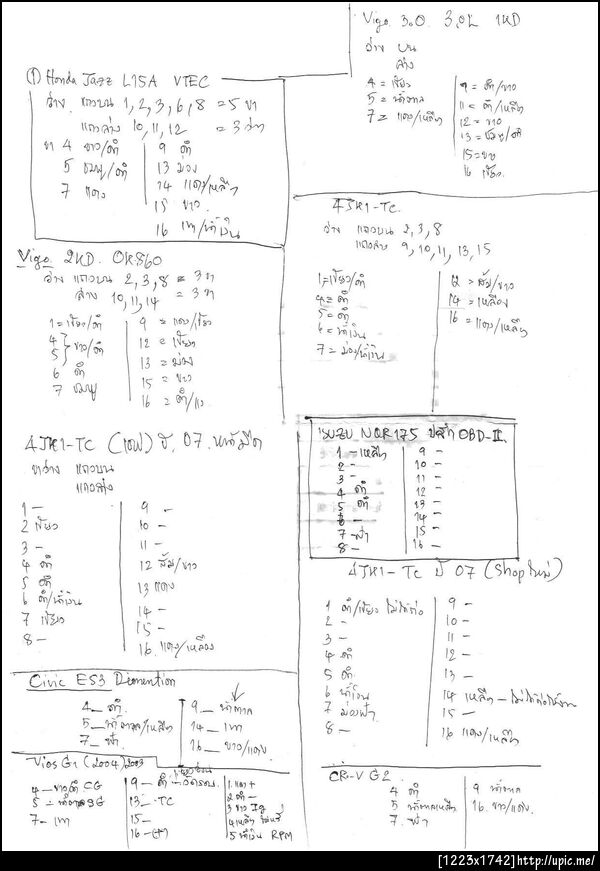 Vigo 3.0 3.0L 1KD
ว่าง บน
ล่าง
4 = เขียว
5 = น้ำตาล
7 = แดง/เหลือง
9 = ดำ/ขาว
11 = ดำ/เหลือง
12 = ขาว
13 = ชมพู/ดำ
15 =
16 เขียว
(1) Honda Jazz L15A VTEC
ว่าง แถวบน 1, 2, 3, 6, 8 = 5 ขา
แถวล่าง 10, 11, 12 = 3 ว่าง
ขา 4 ขาว/ดำ
5 ชมพู/ดำ
7 แดง
9 ดำ
13 ม่วง
14 แดง/เหลือง
15 ขาว
16 เทา/น้ำเงิน
4JK1-TC.
ว่าง แถวบน 2, 3, 8
แถวล่าง 9, 10, 11, 13, 15
1 = เขียว/ดำ
4 = ดำ
5 = ดำ
6 = น้ำเงิน
7 = ม่วง/น้ำเงิน
12 > ส้ม/ขาว
14 = เหลือง
16 = แดง/เหลือง
Vigo 2KD.
ว่าง แถวบน 2, 3, 8 = 3 ขา
ล่าง 10, 11, 14 = 3 ขา
1 = เขียว/ดำ
4
5 } ขาว/ดำ
6 ดำ
7 ชมพู
9 = แดง/เขียว
12 = เขียว
13 = ม่วง
15 = ขาว
16 = ดำ/แดง
4JK1-TC ปี 07
ขาว่าง แถวบน
แถวล่าง
1 –
2 เขียว
3 –
4 ดำ
5 ดำ
6 ดำ/น้ำเงิน
7 เขียว
8 –
9 –
10 –
11 –
12 ส้ม/ขาว
13 แดง
14 –
15 –
16 แดง/เหลือง
ISUZU NQR 175 ปลั๊ก OBD-II
1 – เหลือง
2 –
3 –
4 ดำ
5 ดำ
6 –
7 – ฟ้า
8 –
9 –
10 –
11 –
12 –
13 –
14 –
15 –
16 –
4JK1-TC ปี 07 (Shop ใหม่)
1 ดำ/เขียว ไม่ได้ต่อ
2 –
3 –
4 ดำ
5 ดำ
6 น้ำเงิน
7 ม่วงฟ้า
8 –
9 –
10 –
11 –
12 –
13 –
14 เหลือง – ไม่ได้ต่อใช้งาน
15 –
16 แดง/เหลือง
Civic ES3 Dimention
4 _ ดำ
5 _ น้ำตาล/เหลือง
7 _ ฟ้า
9 _ น้ำตาล
14 _ เทา
16 _ ขาว/แดง
Vios G1 (2004) 2003
4 – ขาวดำ CG
5 = น้ำตาล SG
7 – เทา
9 – ดำ
13 – TC
15 –
16 –
1. แดง +
2 ดำ –
3 ขาว Ig
4 เหลือง
5 น้ำเงิน RPM
CR-V G2
4 ดำ
5 น้ำตาลเหลือง
7. ฟ้า
9 น้ำตาล
16. ขาว/แดง
[1223x1742]http://upic.me/